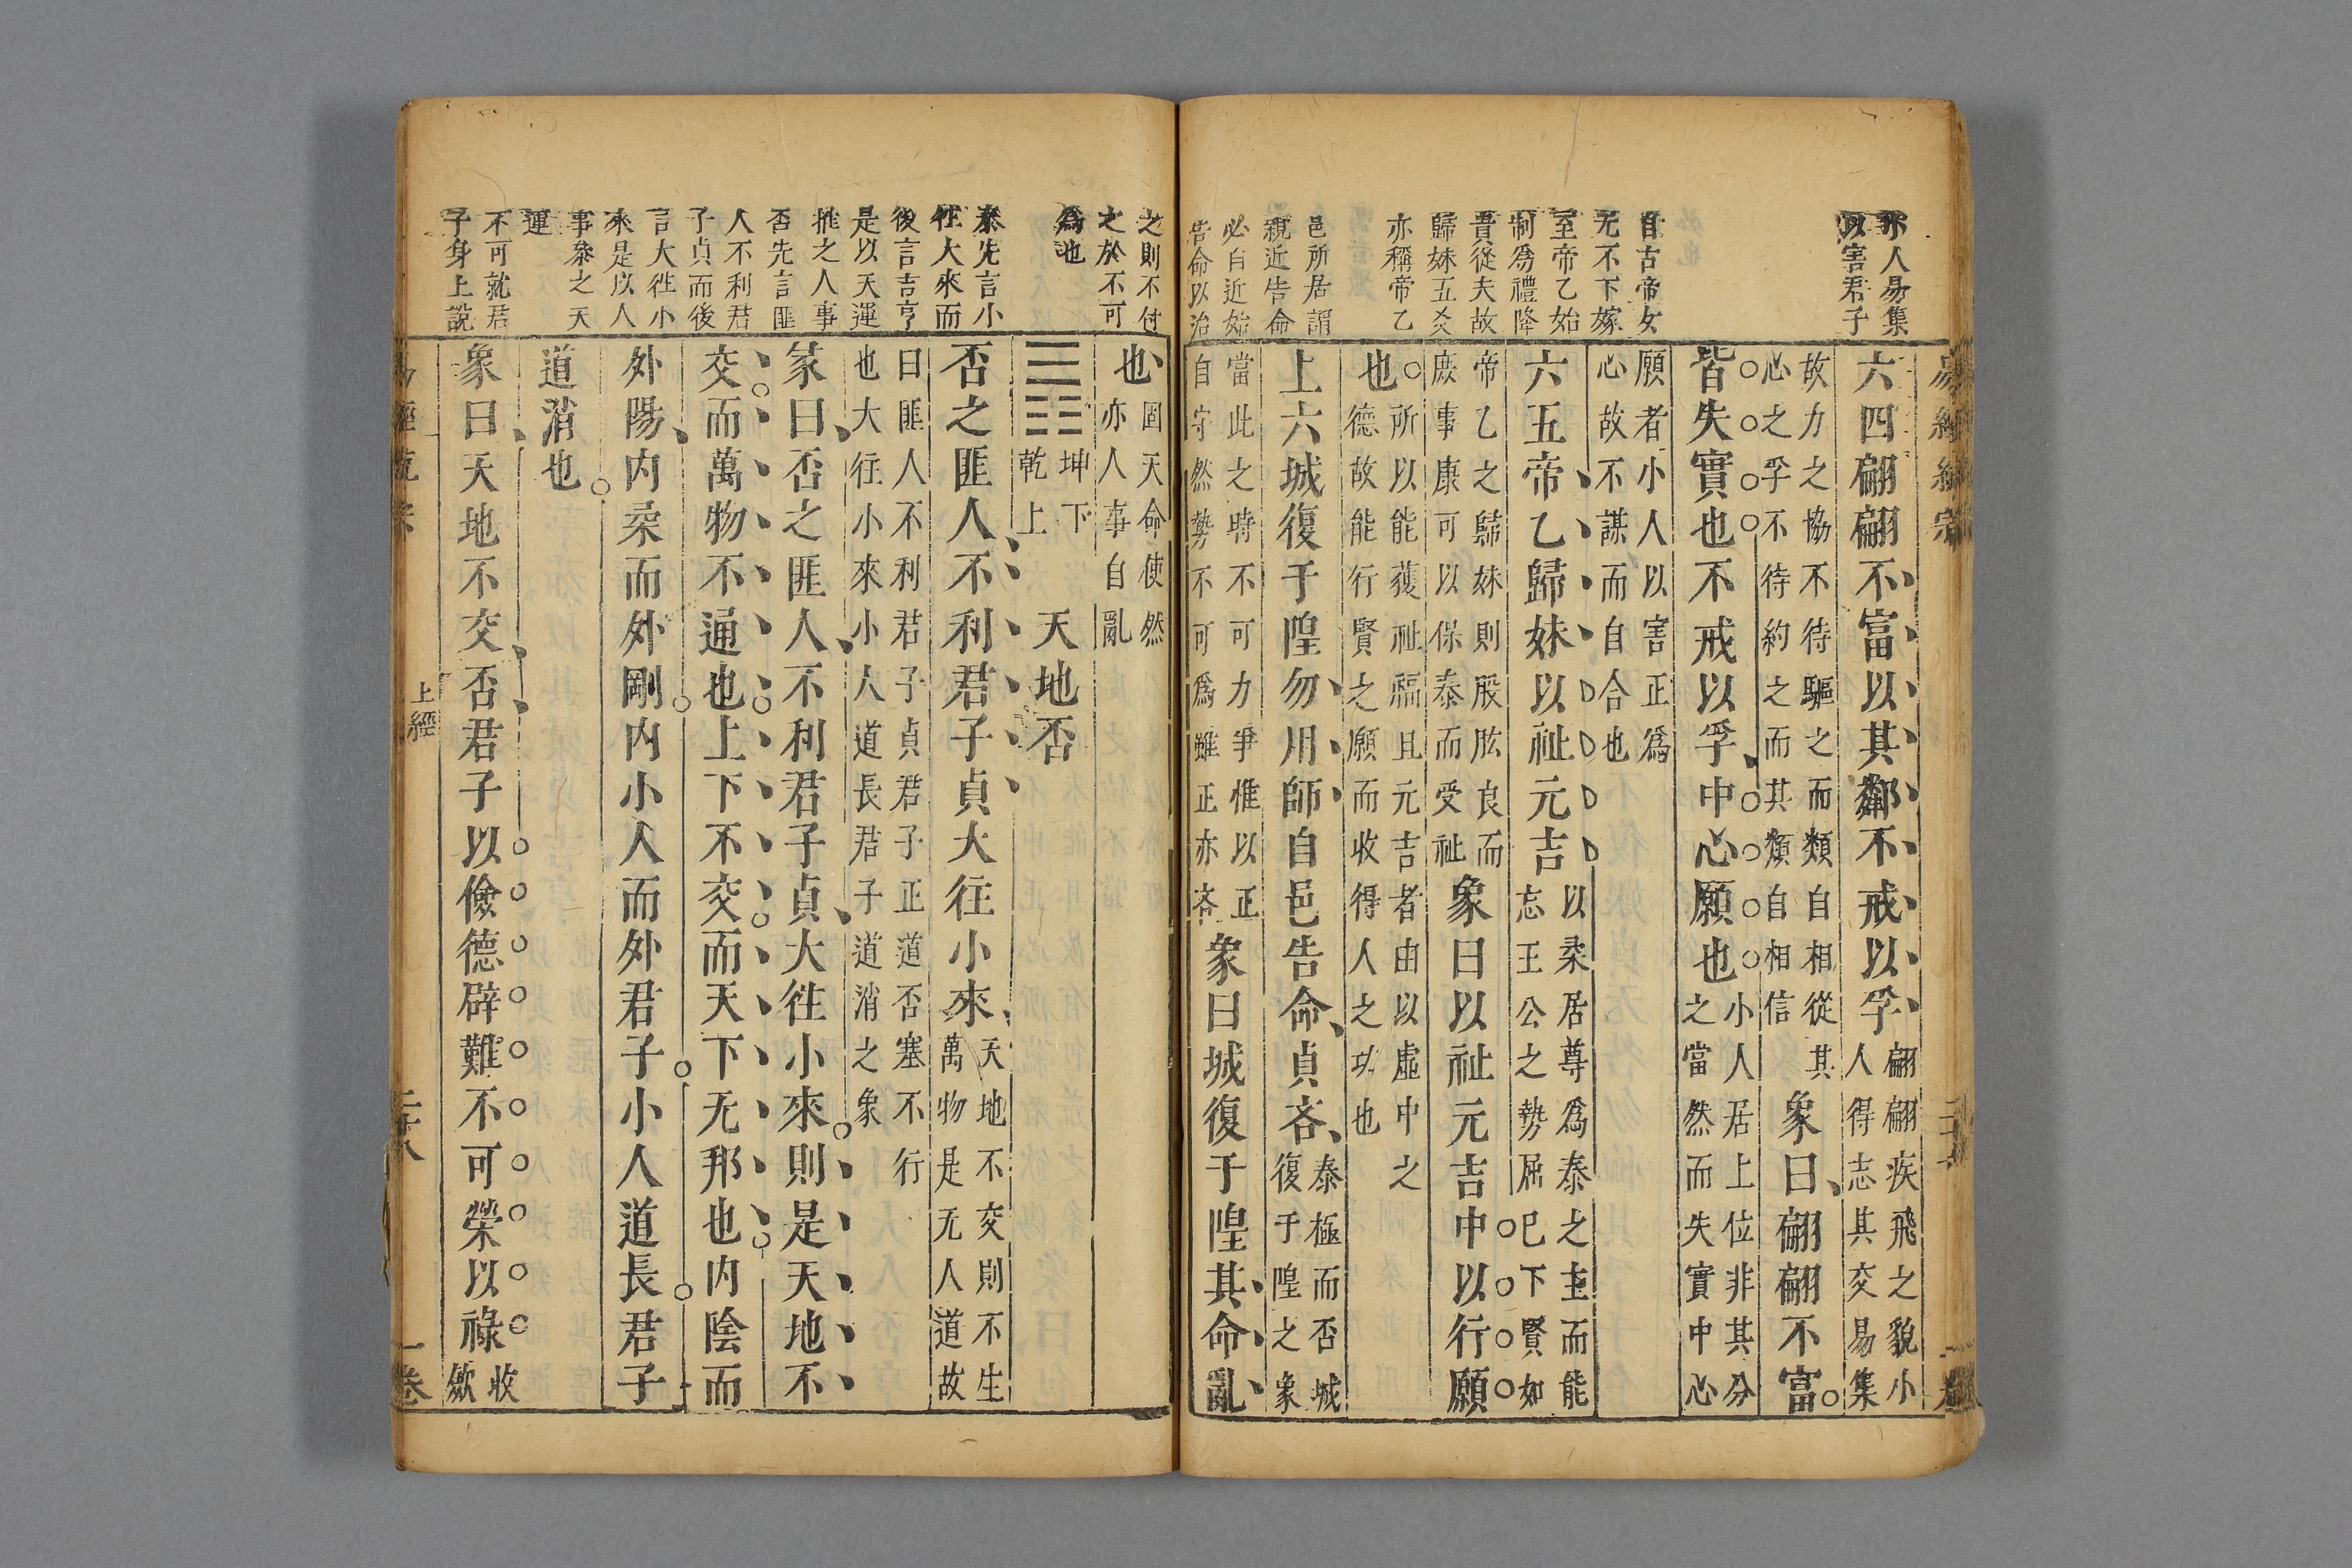 邪人易集
以害君子
自古帝女
无不下嫁
至帝乙始
制爲禮降
貴從夫故
歸妹五爻
亦稱帝乙
邑所居謂
親近告命
必自近始
告命以治
六四翩翩不富以其鄰不戒以孚翩翩疾飛之貌小人得志其交易集
故力之協不待驅之而類自相從其心之孚不待約之而其類自相信象曰翩翩不富
皆失實也不戒以孚中心願也小人居上位非其分之當然而失實中心
願者小人以害正爲心故不謀而自合也
六五帝乙歸妹以祉元吉以柔居尊爲泰之主而能忘王公之勢屈已下賢如
帝乙之歸妹則股肱良而庶事康可以保泰而受祉象曰以祉元吉中以行願
也所以能獲祉福且元吉者由以虛中之德故能行賢之願而收得人之功也
上六城復于隍勿用師自邑告命貞吝泰極而否城復于隍之象
當此之時不可力爭惟以正自守然勢不可爲雖正亦吝象曰城復于隍其命亂
之則不付
之於不可
爲地
泰先言小
往大來而
後言吉亨
是以天運
推之人事
否先言匪
人不利君
子貞而後
言大徃小
來是以人
事參之天
運
不可就君
子身上說
也固天命使然亦人事自亂
坤下乾上 天地否
否之匪人不利君子貞大往小來天地不交則不生萬物是无人道故
曰匪人不利君子貞君子正道否塞不行也大往小來小人道長君子道消之象
彖曰否之匪人不利君子貞大徃小來則是天地不
交而萬物不通也上下不交而天下无邦也內陰而
外陽內柔而外剛內小人而外君子小人道長君子
道消也
象曰天地不交否君子以儉德辟難不可榮以祿收斂
上經